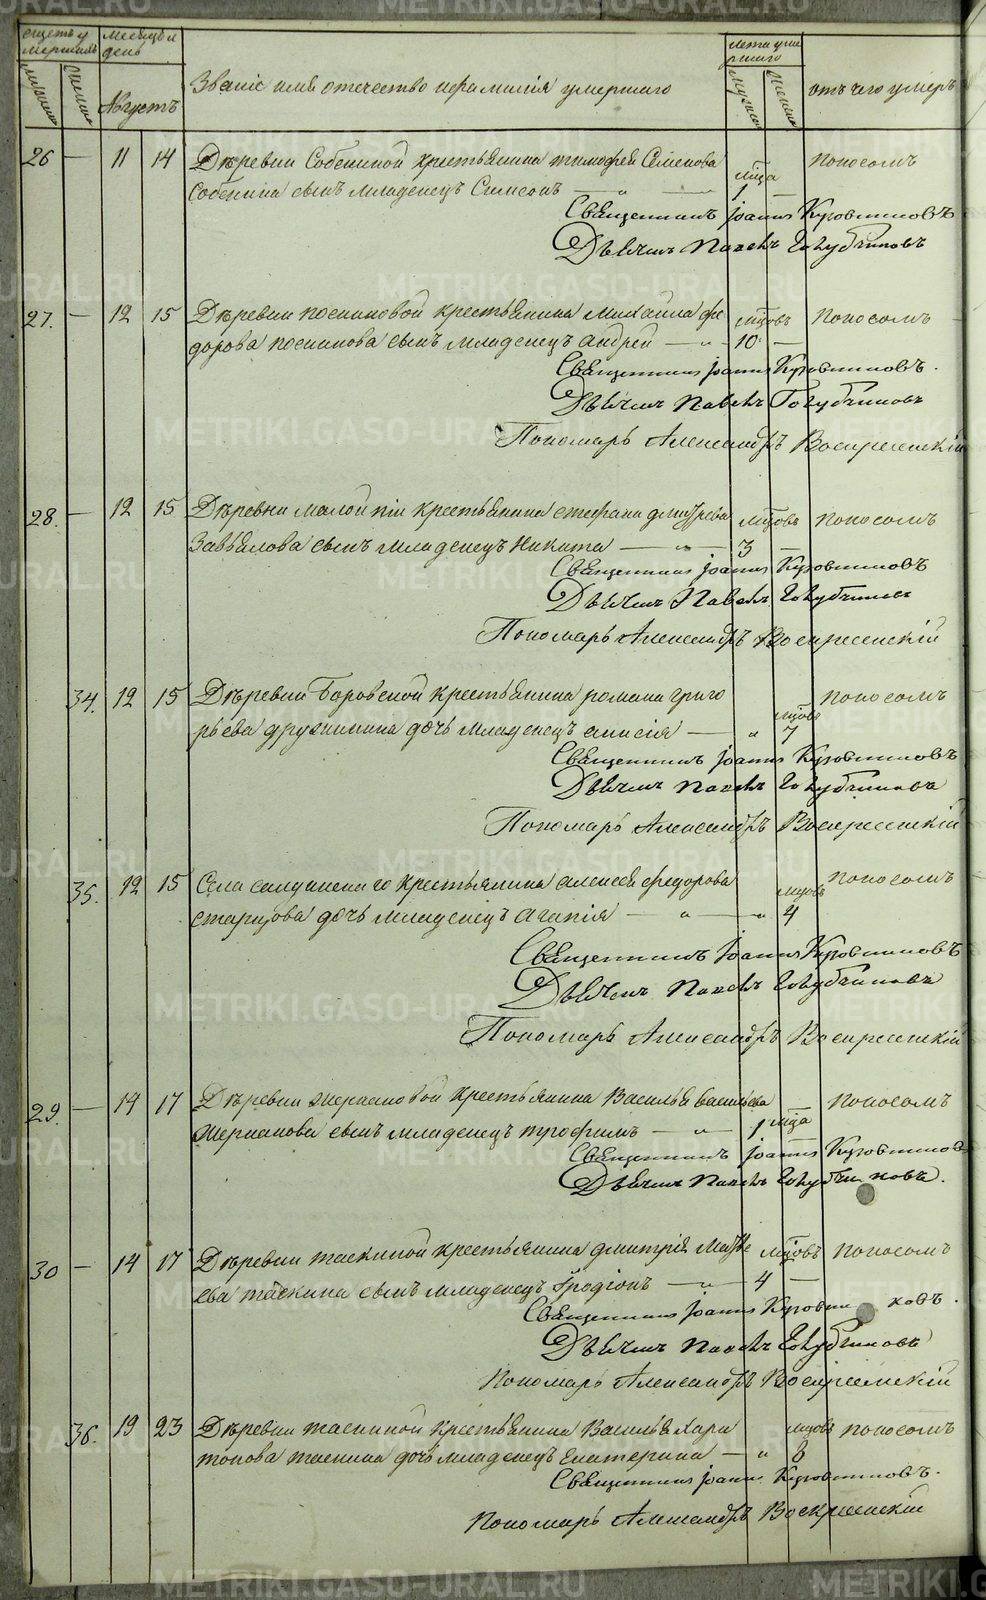 счетъ умершихъ
месяцъ и день
лета умершаго
мужска
женска
Августъ
Званіе имя отечество ифамилія умершаго
мужска
женска
отъ чего умеръ
26 — 11 14 Деревни Собениной крестьянина тимофея Семенова мца поносомъ
Собенина сынъ младенецъ Симеонъ — „ — 1 —
Священникъ Іоаннъ Кузовниковъ
Дьячекъ Павелъ Голубчиковъ
27. — 12 15 Деревни посниковой крестьянина михаила фе мцовъ поносомъ
дорова посникова сынъ младенецъ Андрей — „ — 10 —
Священникъ Іоаннъ Кузовниковъ.
Дьячекъ Павелъ Голубчиковъ
Пономарь Александръ Воскресенскій
28. — 12 15 Деревни малой крестьянина стефана дмитрева мцовъ поносомъ
Завьялова сынъ младенецъ Никита — „ — 3 —
Священникъ Іоаннъ Кузовниковъ
Дьячекъ Павелъ Голубчиковъ
Пономарь Александръ Воскресенскій
34. 12 15 Деревни Боровской крестьянина романа григо мцовъ поносомъ
рьева дружинина дочь младенецъ анисія — „ 7
Священникъ Іоаннъ Кузовниковъ
Дьячекъ Павелъ Голубчикова
Пономарь Александръ Воскресенскій
35. 12 15 Села салдинскаго крестьянина алексея федорова мцовъ поносомъ
старцова дочь младенецъ Агапія — „ — „ 4
Священникъ Іоаннъ Кузовниковъ
Дьячекъ Павелъ Голубчикова
Пономарь Александръ Воскресенскій
29. — 14 17 Деревни жернаковой крестьянина Василья васильева мца поносомъ
жернакова сынъ младенецъ трофимъ — „ — 1
Священникъ Іоаннъ Кузовниковъ
Дьячекъ Павелъ Голубчиковъ.
30 — 14 17 Деревни таскиной крестьянина дмитрія Матве мцовъ поносомъ
ева таскина сынъ младенецъ Іродіонъ — „ — 4 —
Священникъ Іоаннъ Кузовниковъ.
Дьячекъ Павелъ Голубчиковъ
Пономарь Александръ Воскресенскій
36. 19 23 Деревни таскиной Крестьянина Василья Хари мцовъ поносомъ
тонова таскина дочь младенецъ Екатерина — „ 8
Священникъ Іоаннъ Кузовниковъ.
Пономарь Александръ Воскресенскій
METRIKI.GASO-URAL.RU